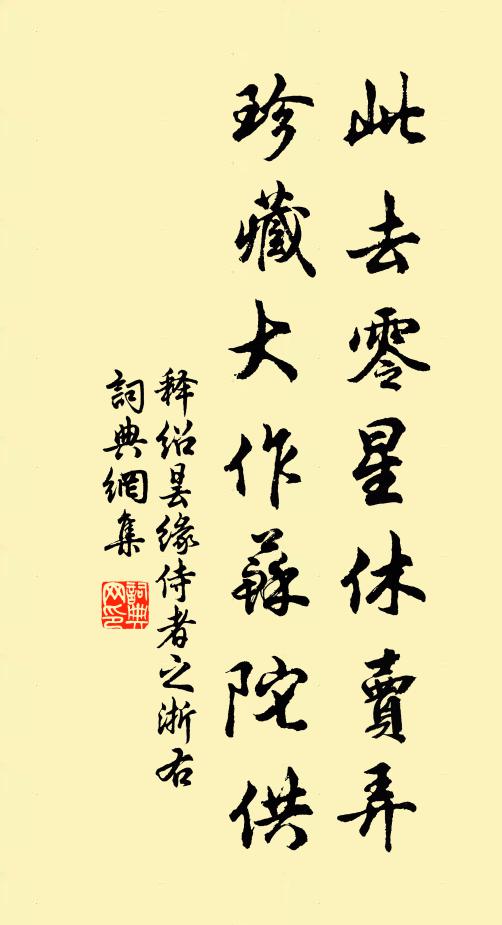 此去零星休賣弄
珍藏大作蘇陀供
释紹曇緣侍者之浙右
詞典網集
詞典
网印